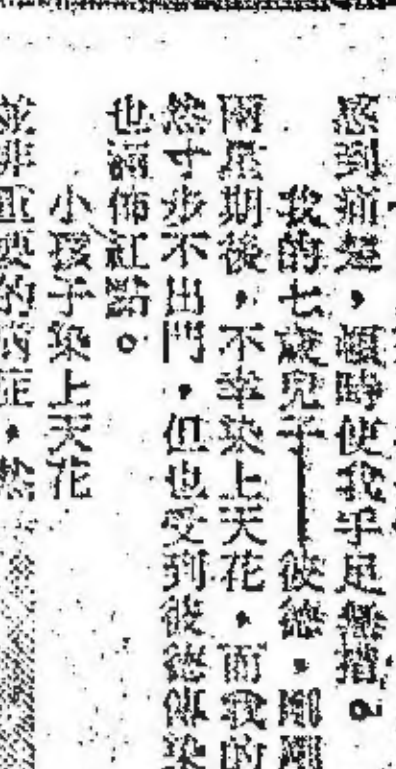 感到痛楚，頓時使我手足無措。
我的七歲兒子——彼德，剛剛
兩星期後，不幸染上天花，而我的
然寸步不出門，但也受到彼德傳染
也滿佈紅點。
小孩子染上天花
並非重要的病症，